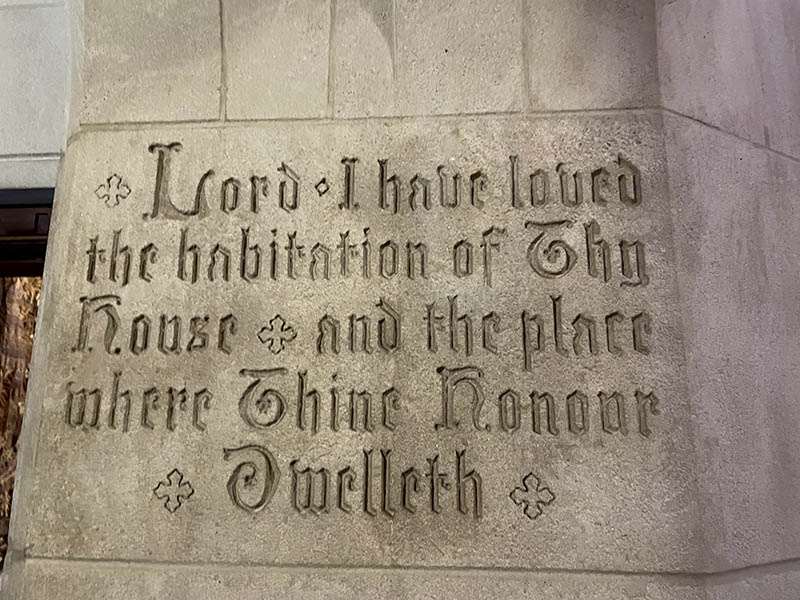 Lord · I have loved
the habitation of Thy
House and the place
where Thine Honour
Dwelleth